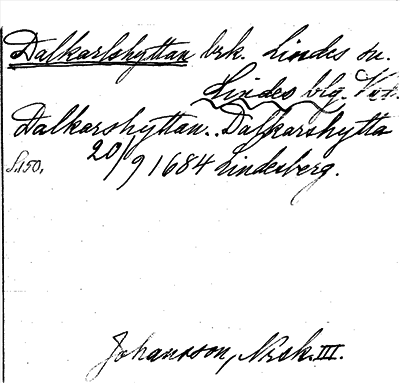 Dalkarlshyttan brk. Lindes sn.
Lindes blg. Vstm.
Dalkarshyttan. Dalkarshytta
S.150. 20/9 1684 Lindesberg.
Johansson, Norsk. III.